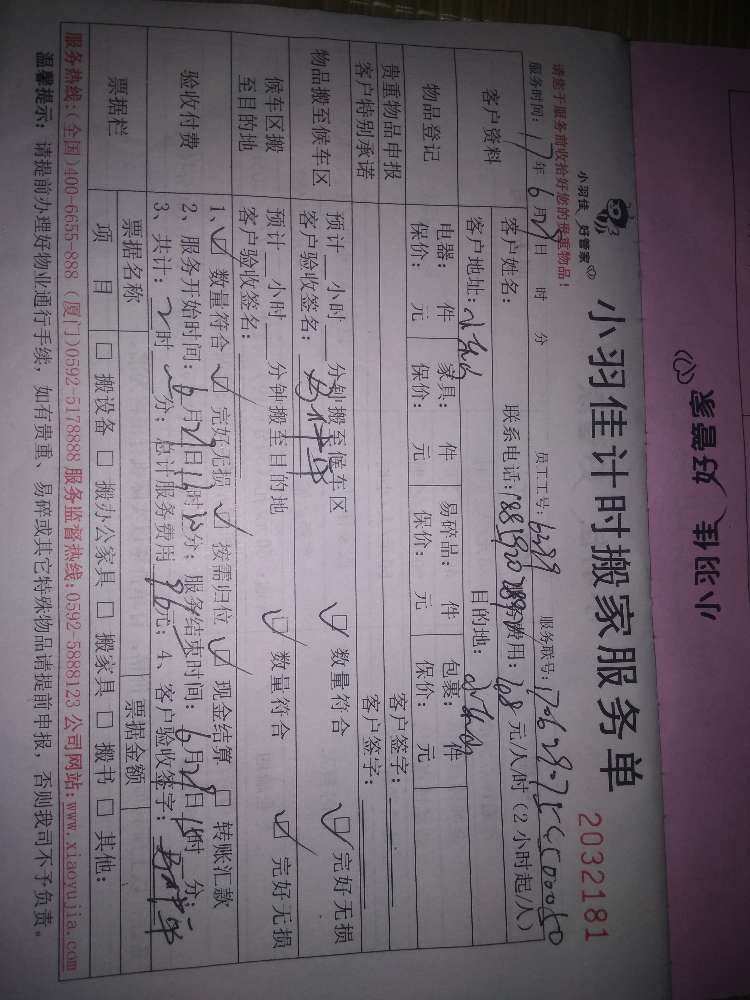 小羽佳 好管家
小羽佳 好管家
小羽佳计时搬家服务单
2032181
请您于服务前收拾好您的贵重物品！
服务时间：17年6月 日 时 分 员工工号：6289 服务联号：
客户资料
客户姓名： 联系电话： 服务费用： 元/人/时（2小时起/人）
客户地址： 目的地：
物品登记
电器： 件 家具： 件 易碎品： 件 包裹： 件
保价： 元 保价： 元 保价： 元 保价： 元
贵重物品申报
客户签字：
客户特别承诺
客户签字：
物品搬至候车区
预计 小时 分钟搬至候车区 ☑ 数量符合 ☑ 完好无损
客户验收签名：
候车区搬至目的地
预计 小时 分钟搬至目的地 ☑ 数量符合 ☑ 完好无损
客户验收签名：
验收付费
1、☑ 数量符合 ☑ 完好无损 ☑ 按需归位 ☑ 现金结算 □ 转账汇款
2、服务开始时间：6月28日 时 分；服务结束时间：6月28日15时 分；
3、共计：2时 分；总计服务费用 元；4、客户验收签字：
票据栏
票据名称 票据金额
项 目 □ 搬设备 □ 搬办公家具 □ 搬家具 □ 搬书 □ 其他：
服务热线：(全国)400-6655-888 (厦门)0592-5178888 服务监督热线：0592-5888123 公司网站：www.xiaoyujia.com
温馨提示：请提前办理好物业通行手续，如有贵重、易碎或其它特殊物品请提前申报，否则我司不予负责。